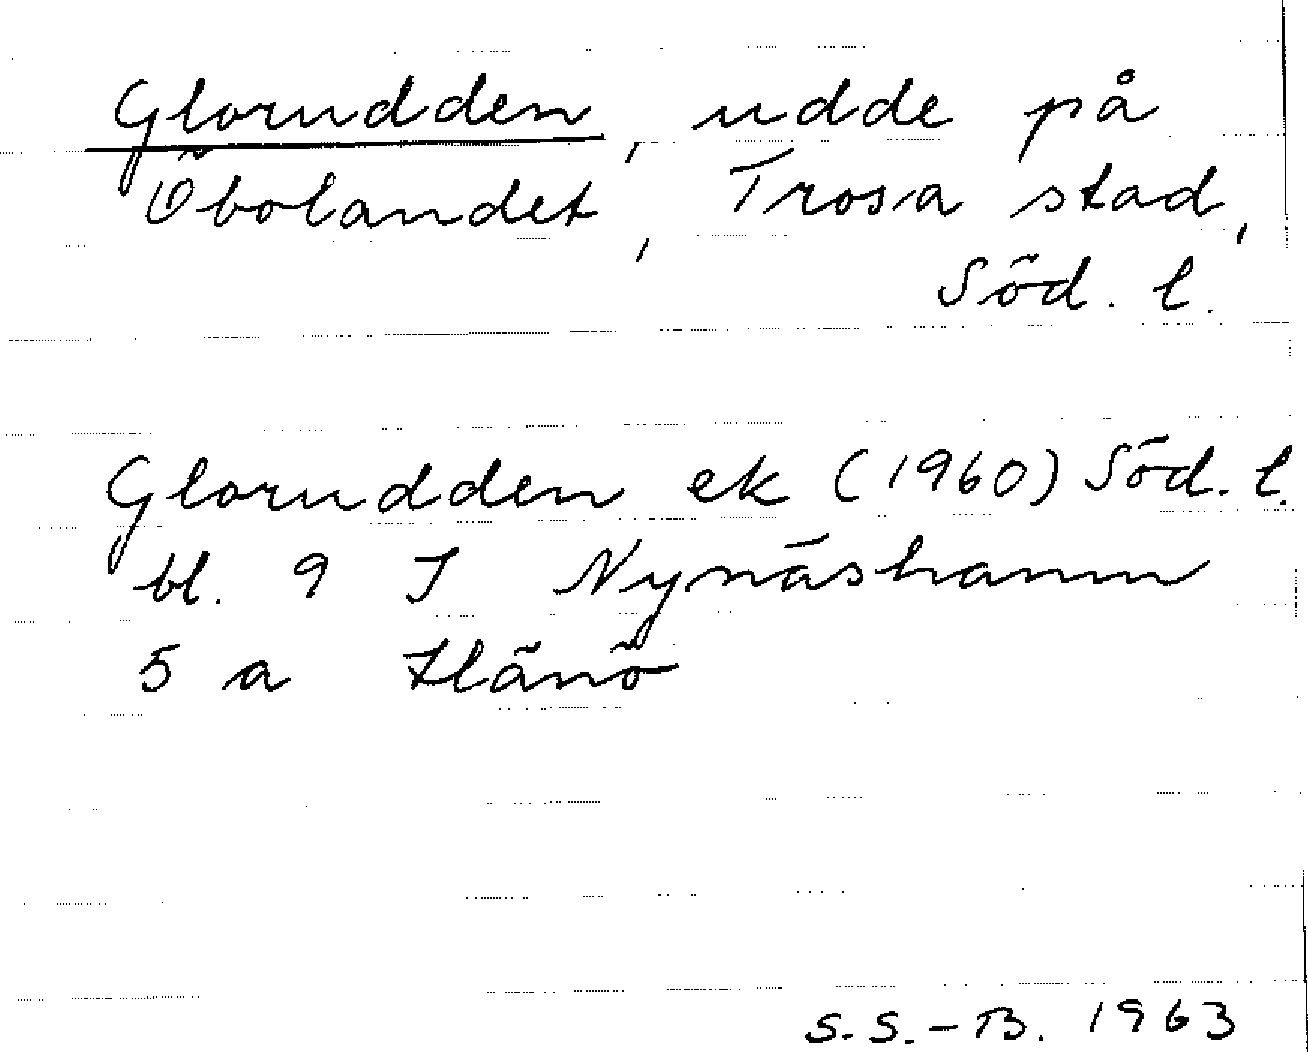 Glorudden, udde på
Öbolandet, Trosa stad,
Söd. l.
Glorudden ek (1960) Söd. l.
bl. 9 I Nynäshamn
5 a Hänö
S.S.-B. 1963